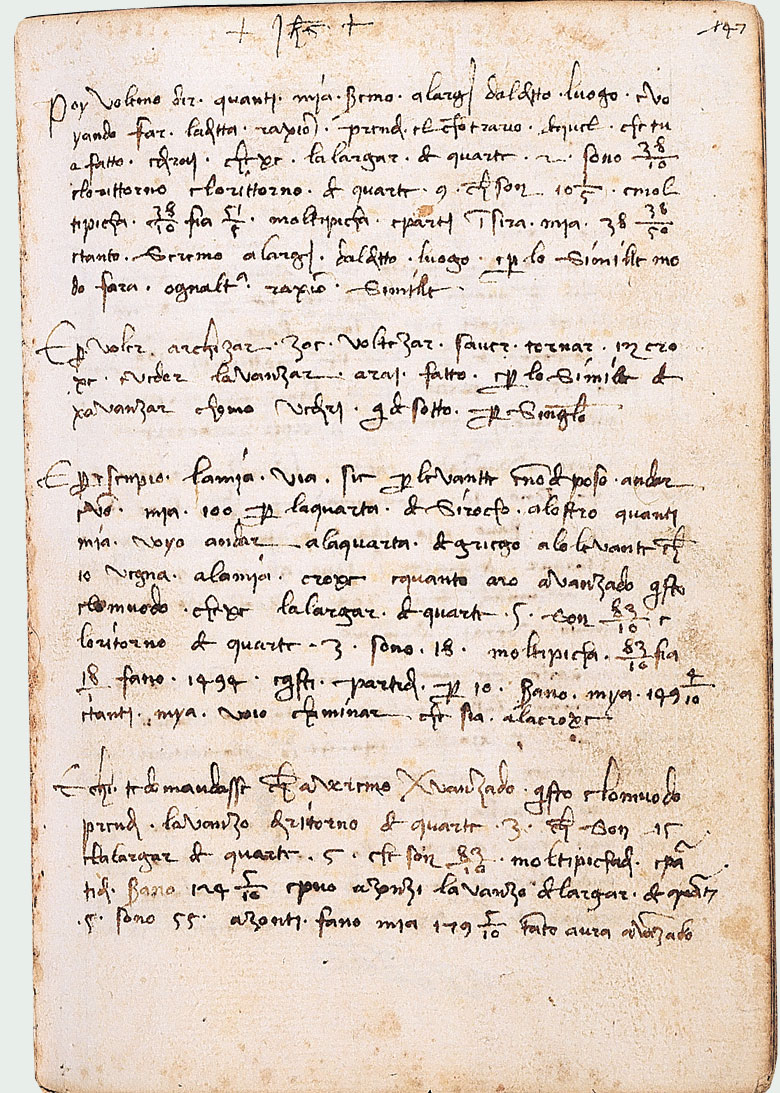 + Jhs + 147
Poy volemo dir. quanti. mia. semo. alargi daldetto. luogo. e vo
yando far. la detta. raxion. prendi. el chotrario. de quel. che tu
a fatto. e dirai. che xe. la largar. de quarte. 2. sono 38/10
e lo rittorno e lo rittorno. de quarte. 9. che son 10 1/5. e mol
tipicha. 38/10 fia 51/5. moltipicha. e parti insira. mia. 38 38/50
e tanto. Seremo alargi. daldetto. luogo. e per lo Simille mo
do fara. ognaltra. raxion. Simille.
E per voler. archizar. zoe. voltezar. saver. tornar. in cro
xe. e veder la vanzar. arai. fatto. e per lo Simile de
xavanzar chomo vederi. qi de sotto. per Singolo
E per esenpio. la mia. via. sie per levantte e non de poso. andar
e vo. mia. 100 per la quarta. de Sirocho. alostro quanti
mia. voyo andar a la quarta. de griego a lo levante che
io vegna. a la mia. croxe e quanto aro avanzado questo
e lo muodo. che xe la largar. de quarte. 5. Son 83/10 e
lo ritorno de quarte. 3. sono. 18. moltipicha. 83/10 fia
18/1 fano. 1494. e questi. partidi. per 10. Sano. mya. 149 4/10
e tanti. mya. voio chaminar che sia. a la croxe
E chi. te domandasse che avremo Xvanzado. questo e lo muodo
prendi. la vanzo de ritorno de quarte. 3. che Son 15
e la largar de quarte. 5. che son 83/10. moltipichadi. e par
tidi. Sano 124 5/10 e puo azonzi la vanzo de largar. de quarte
.5. sono 55. azonti. fano mia 179 5/10 tanto aura avanzado